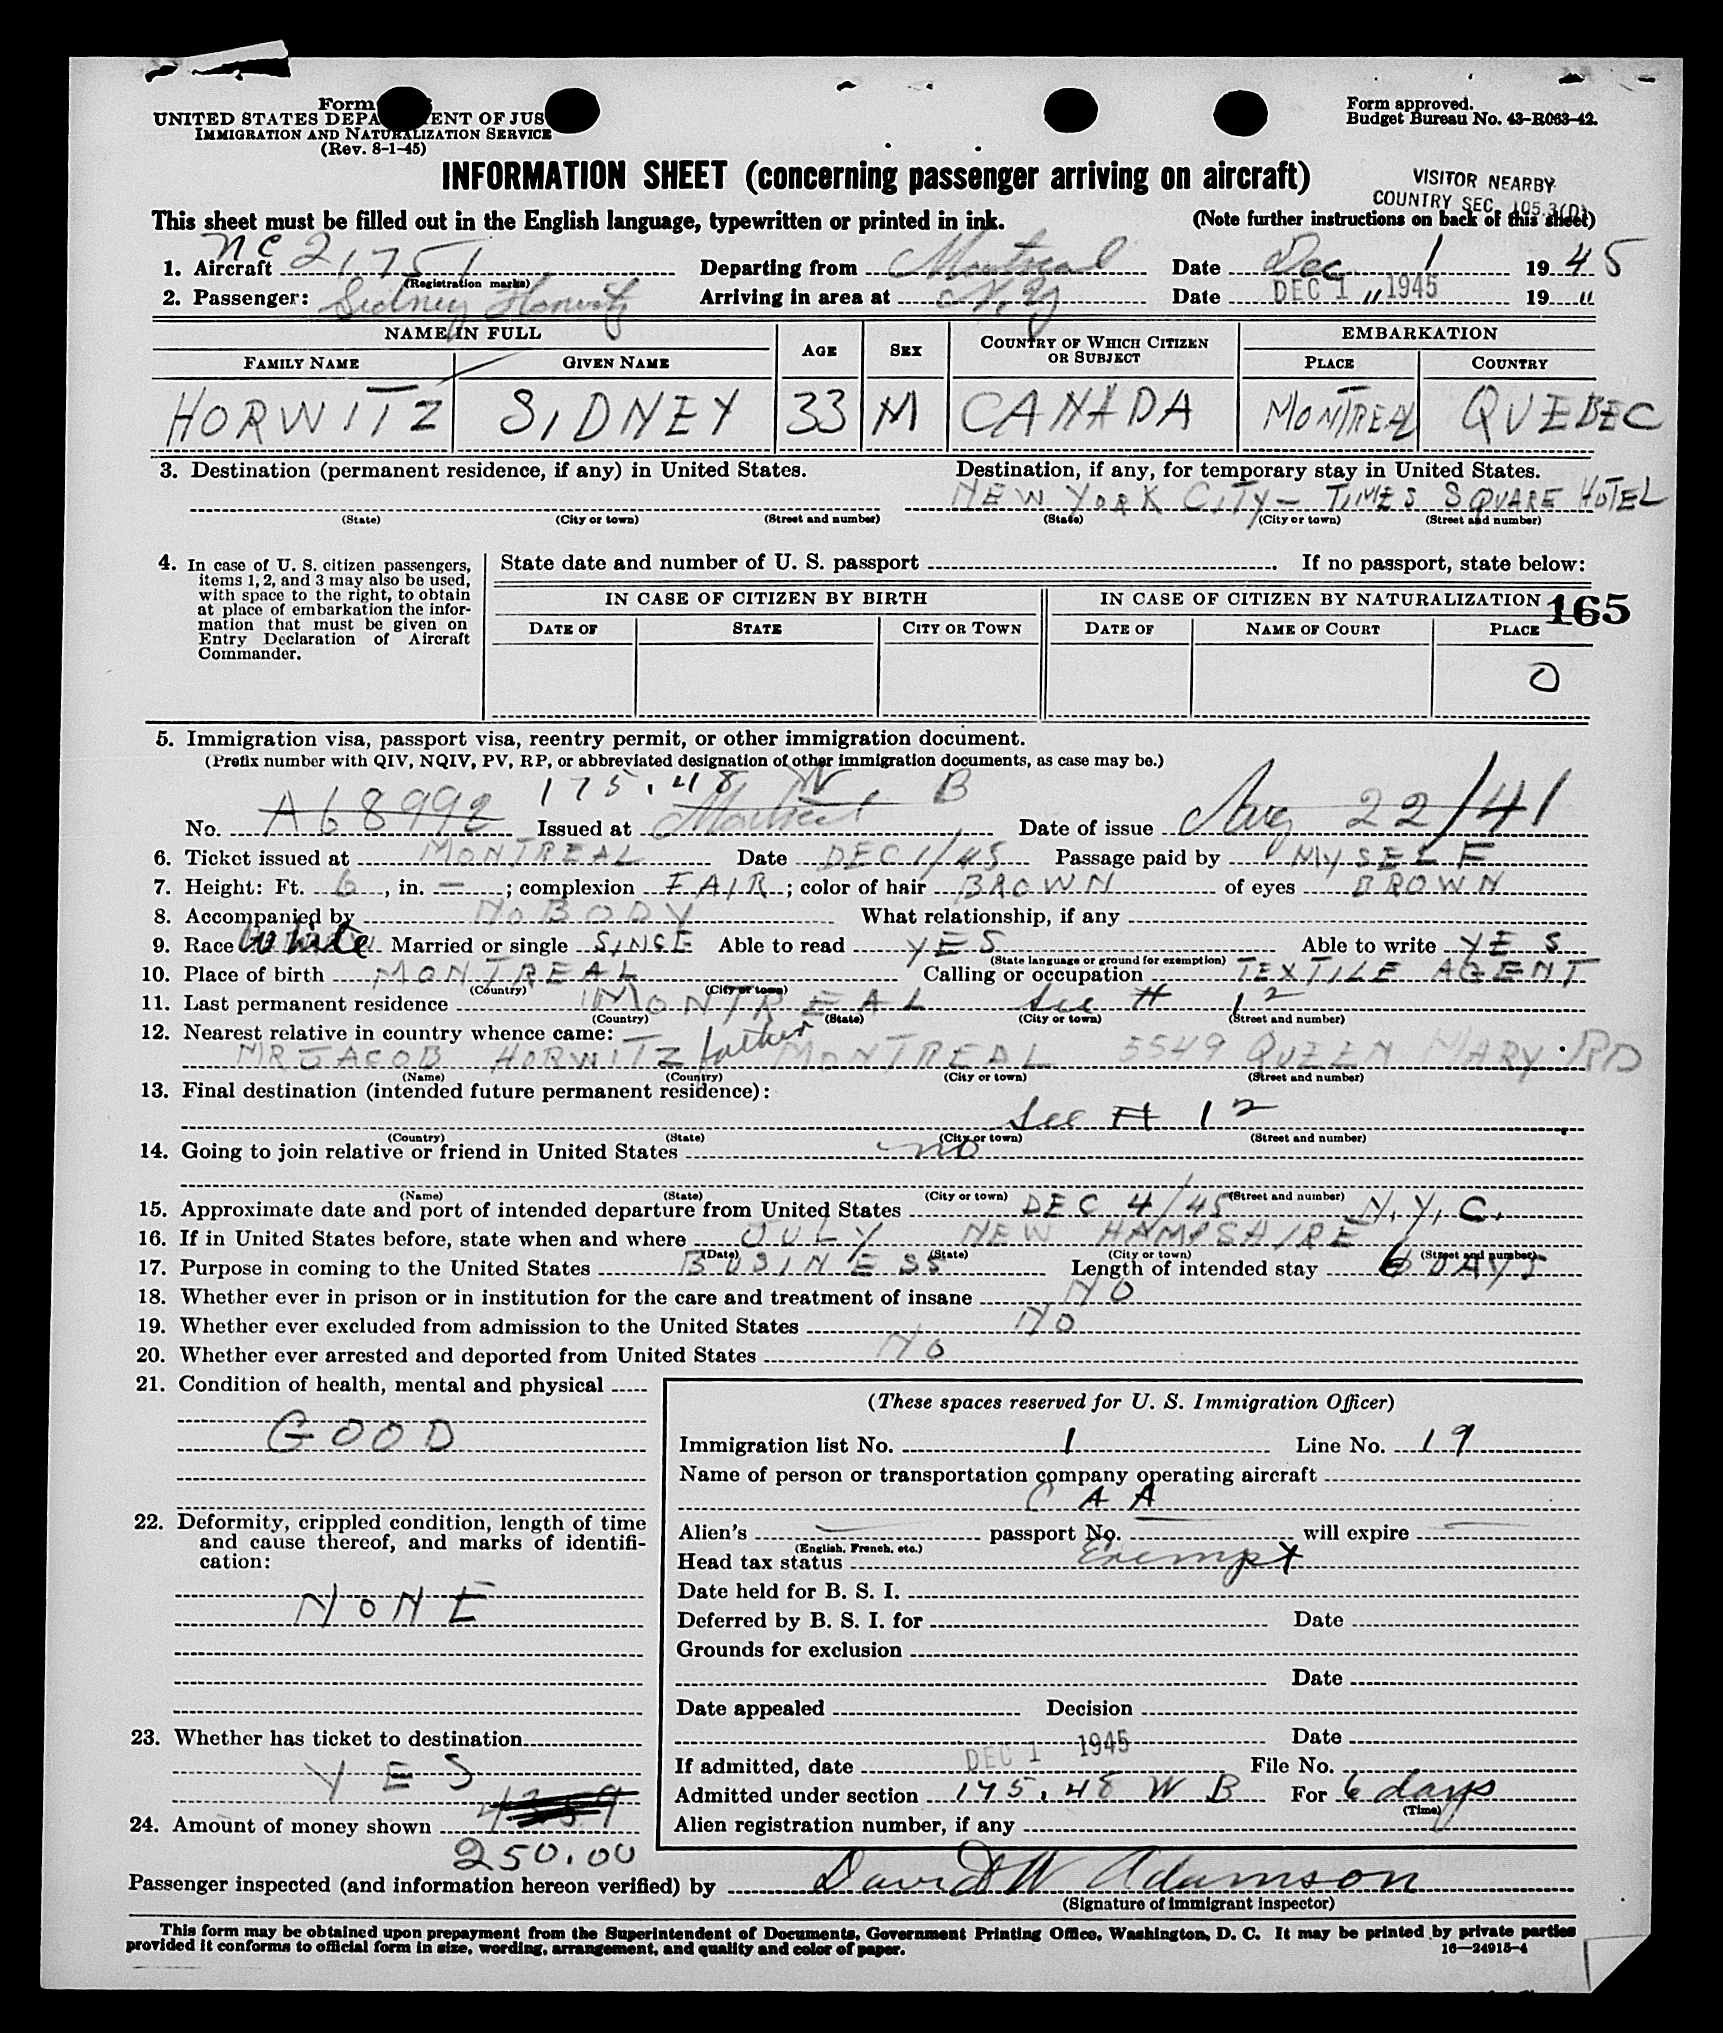 Form
UNITED STATES DEPA ENT OF JUS
IMMIGRATION AND NATURALIZATION SERVICE
(Rev. 8-1-45)
Form approved.
Budget Bureau No. 43-R063-42.
INFORMATION SHEET (concerning passenger arriving on aircraft)
VISITOR NEARBY
COUNTRY SEC. 105.3(D)
This sheet must be filled out in the English language, typewritten or printed in ink. (Note further instructions on back of this sheet)
1. Aircraft NC 21751 Departing from Montreal Date Dec 1 1945
(Registration marks)
2. Passenger: Sidney Horwitz Arriving in area at N.Y. Date DEC 1 1945 19 "
NAME IN FULL AGE SEX COUNTRY OF WHICH CITIZEN OR SUBJECT EMBARKATION
FAMILY NAME GIVEN NAME PLACE COUNTRY
HORWITZ SIDNEY 33 M CANADA MONTREAL QUEBEC
3. Destination (permanent residence, if any) in United States. Destination, if any, for temporary stay in United States.
NEW YORK CITY - TIMES SQUARE HOTEL
(State) (City or town) (Street and number) (State) (City or town) (Street and number)
4. In case of U. S. citizen passengers, items 1, 2, and 3 may also be used, with space to the right, to obtain at place of embarkation the information that must be given on Entry Declaration of Aircraft Commander.
State date and number of U. S. passport If no passport, state below:
IN CASE OF CITIZEN BY BIRTH IN CASE OF CITIZEN BY NATURALIZATION 165
DATE OF STATE CITY OR TOWN DATE OF NAME OF COURT PLACE
0
5. Immigration visa, passport visa, reentry permit, or other immigration document.
(Prefix number with QIV, NQIV, PV, RP, or abbreviated designation of other immigration documents, as case may be.)
175.48 W B
No. A68992 Issued at Montreal Date of issue Aug 22/41
6. Ticket issued at MONTREAL Date DEC 1/45 Passage paid by MYSELF
7. Height: Ft. 6, in. —; complexion FAIR; color of hair BROWN of eyes BROWN
8. Accompanied by NOBODY What relationship, if any
9. Race White Married or single SINGE Able to read YES Able to write YES
(State language or ground for exemption)
10. Place of birth MONTREAL Calling or occupation TEXTILE AGENT
(Country) (City or town)
11. Last permanent residence MONTREAL See # 12
(Country) (State) (City or town) (Street and number)
12. Nearest relative in country whence came:
MR JACOB HORWITZ father MONTREAL 5549 QUEEN MARY RD
(Name) (Country) (City or town) (Street and number)
13. Final destination (intended future permanent residence):
See # 12
(Country) (State) (City or town) (Street and number)
14. Going to join relative or friend in United States no
(Name) (State) (City or town) (Street and number)
15. Approximate date and port of intended departure from United States DEC 4/45 N.Y.C.
16. If in United States before, state when and where JULY NEW HAMPSHIRE
(Date) (State) (City or town) (Street and number)
17. Purpose in coming to the United States BUSINESS Length of intended stay 6 DAYS
18. Whether ever in prison or in institution for the care and treatment of insane NO
19. Whether ever excluded from admission to the United States NO
20. Whether ever arrested and deported from United States NO
21. Condition of health, mental and physical
GOOD
22. Deformity, crippled condition, length of time and cause thereof, and marks of identification:
NONE
23. Whether has ticket to destination
YES
24. Amount of money shown
250.00
(These spaces reserved for U. S. Immigration Officer)
Immigration list No. 1 Line No. 19
Name of person or transportation company operating aircraft
C A A
Alien's passport No. will expire
(English, French, etc.)
Head tax status Exempt
Date held for B. S. I.
Deferred by B. S. I. for Date
Grounds for exclusion
Date
Date appealed Decision
Date
If admitted, date DEC 1 1945 File No.
Admitted under section 175.48 W B For 6 days
(Time)
Alien registration number, if any
Passenger inspected (and information hereon verified) by David W Adamson
(Signature of immigrant inspector)
This form may be obtained upon prepayment from the Superintendent of Documents, Government Printing Office, Washington, D. C. It may be printed by private parties
provided it conforms to official form in size, wording, arrangement, and quality and color of paper.
16—24915-4